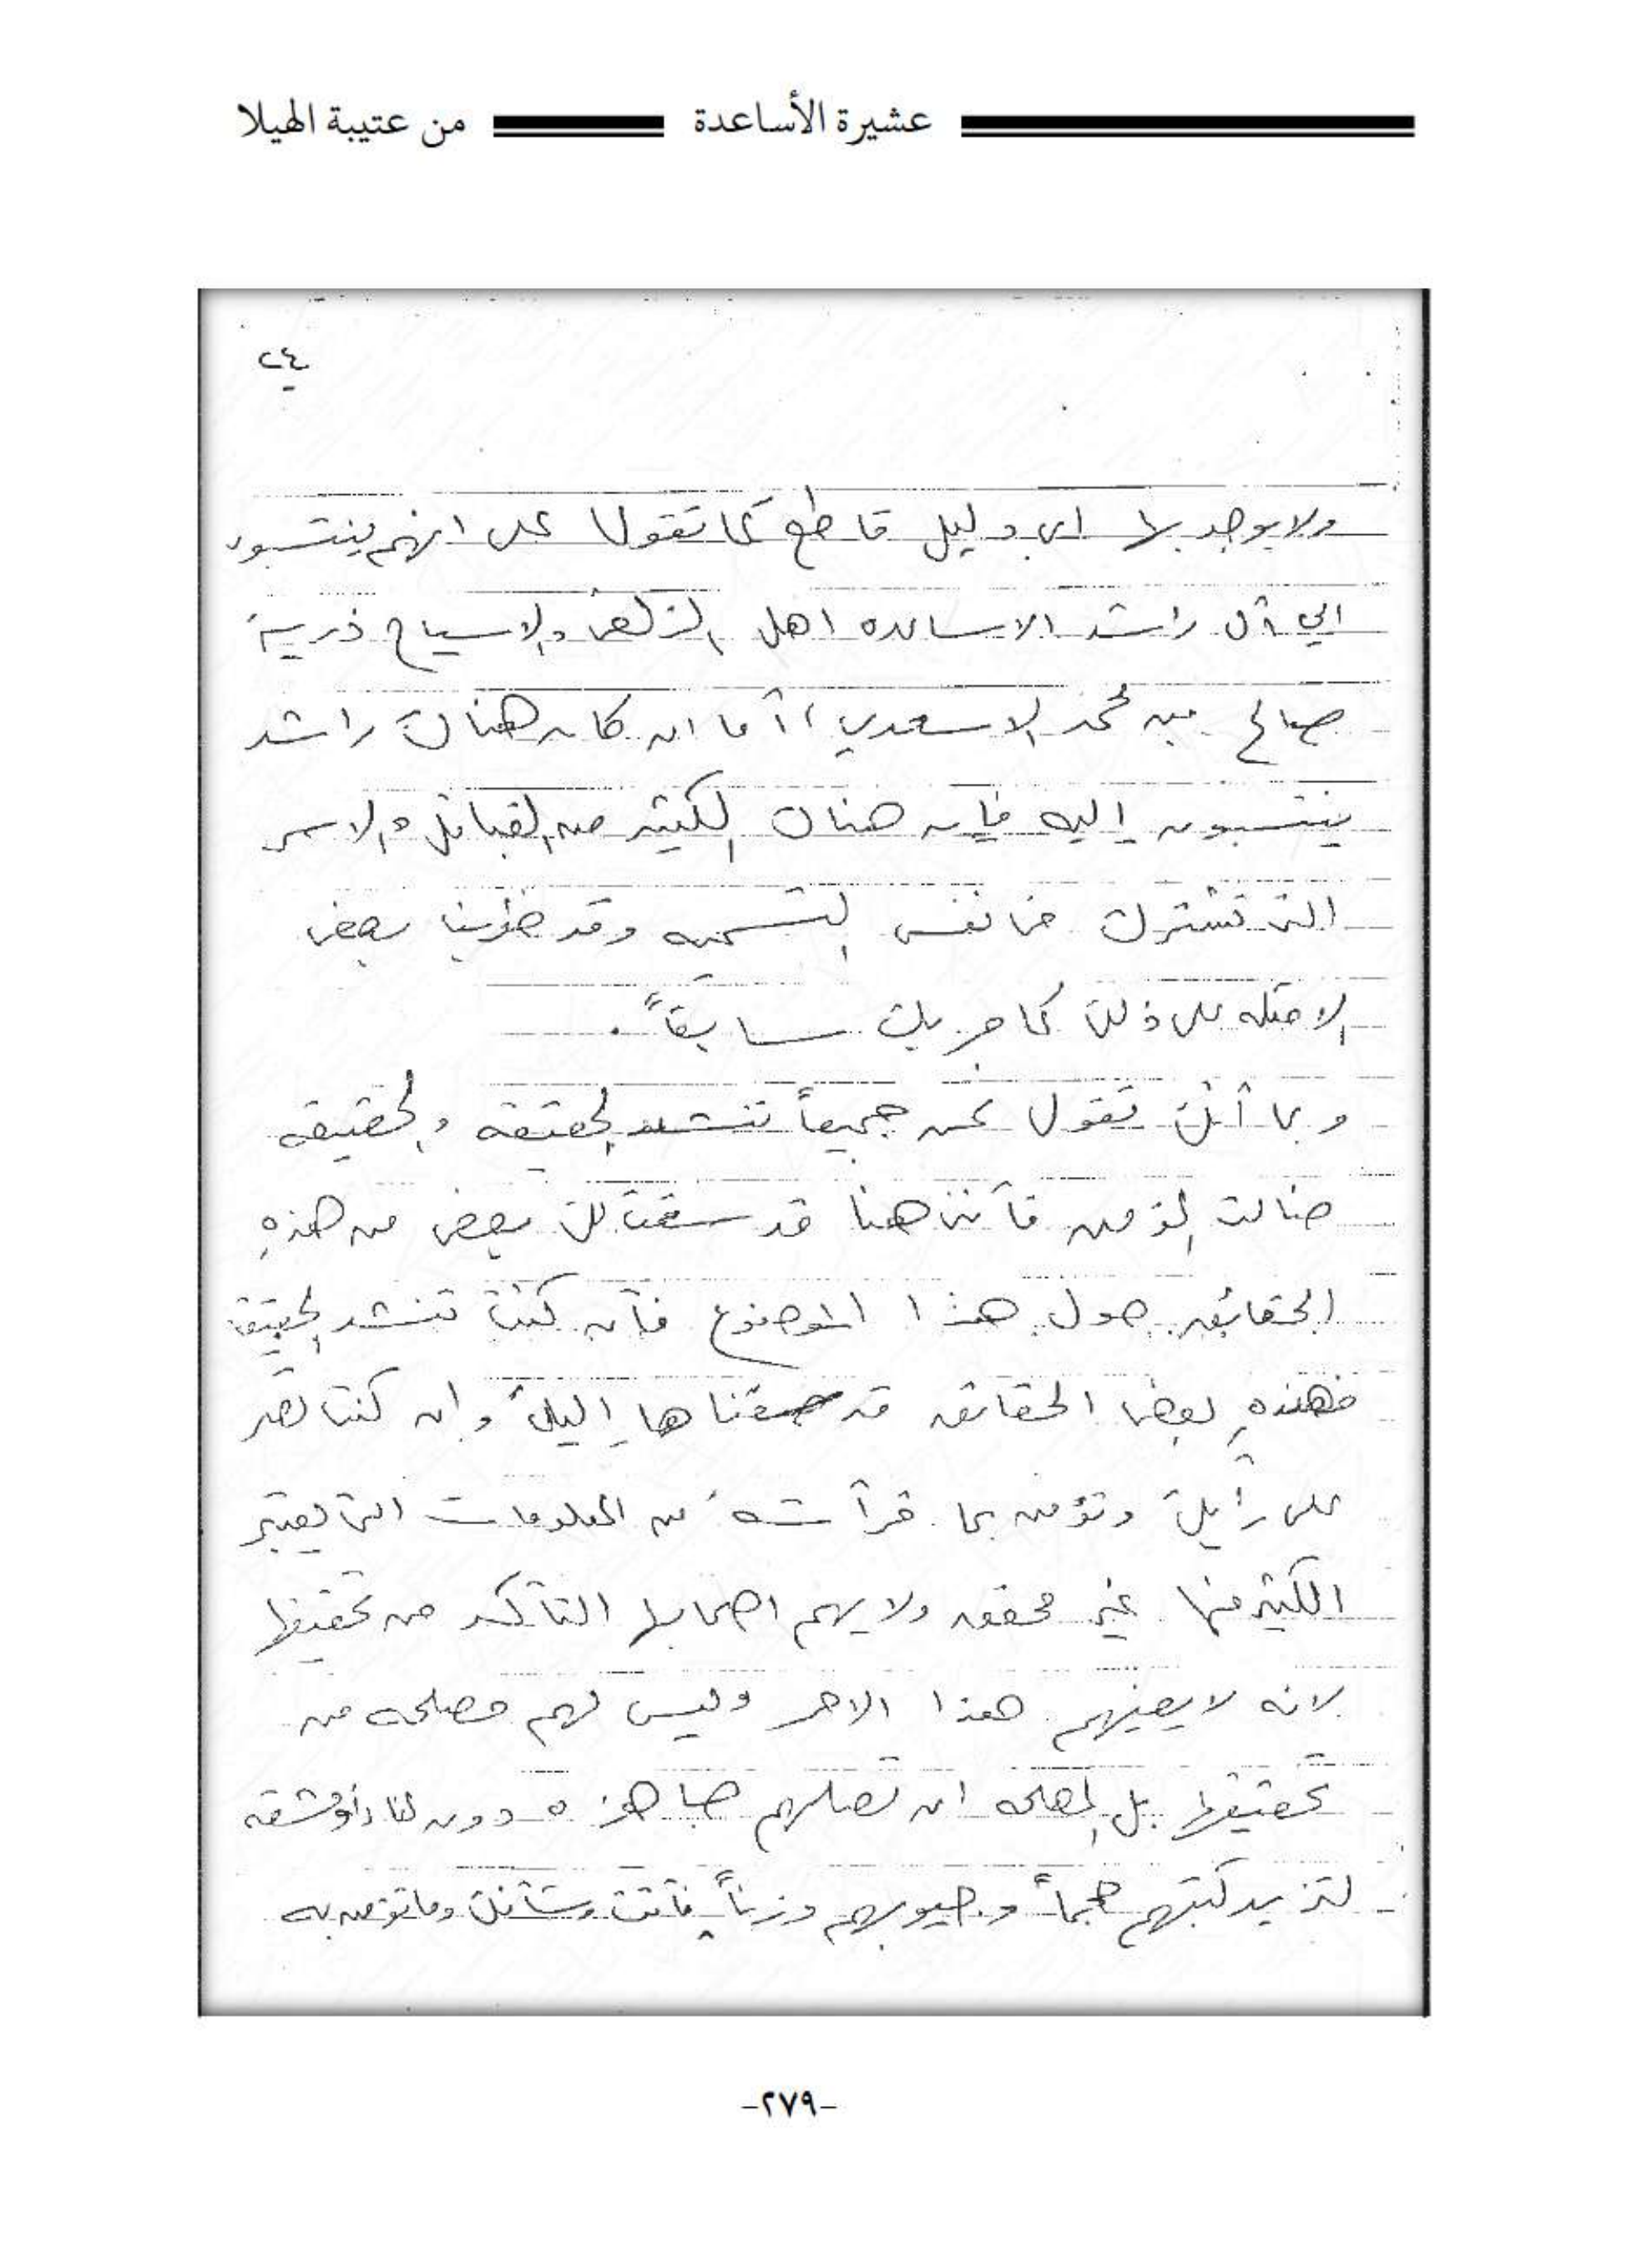 عشيرة الأساعدة من عتيبة الهيلا
٢٤
ولا يوجد بها اي دليل قاطع كما تقول على انهم ينتسبون
الي آل راشد الاساعده اهل الزلفي والاسياح ذرية
صالح بن محمد الاسعدي، أما ان كان هناك راشد
ينتسبون إليه فإن هناك الكثير من القبائل والاسر
التي تشترك في نفس التسميه وقد ضربنا بعض
الامثله على ذلك كما مر بك سابقاً.
وبما أنك تقول نحن جميعاً ننشد الحقيقه والحقيقه
ضالت المؤمن فأننا هنا قد سقنا لك بعض من هذه
الحقائق حول هذا الموضوع فأن كنت تنشد الحقيقة
فهذه بعض الحقائق قد سقناها إليك وان كنت تصر
على رأيك وتؤمن بما قرأته من المعلومات التي يعتبر
الكثير منها غير محققه ولا يهم اصحابها التأكد من تحقيقها
لانه لا يعنيهم هذا الامر وليس لهم مصلحه من
تحقيقها بل المصلحه ان تصلهم جاهزه دون عناء أو مشقه
لتزيد كتبهم حجماً وجيوبهم وزناً فأنت وشأنك وما تؤمن به
-٢٧٩-